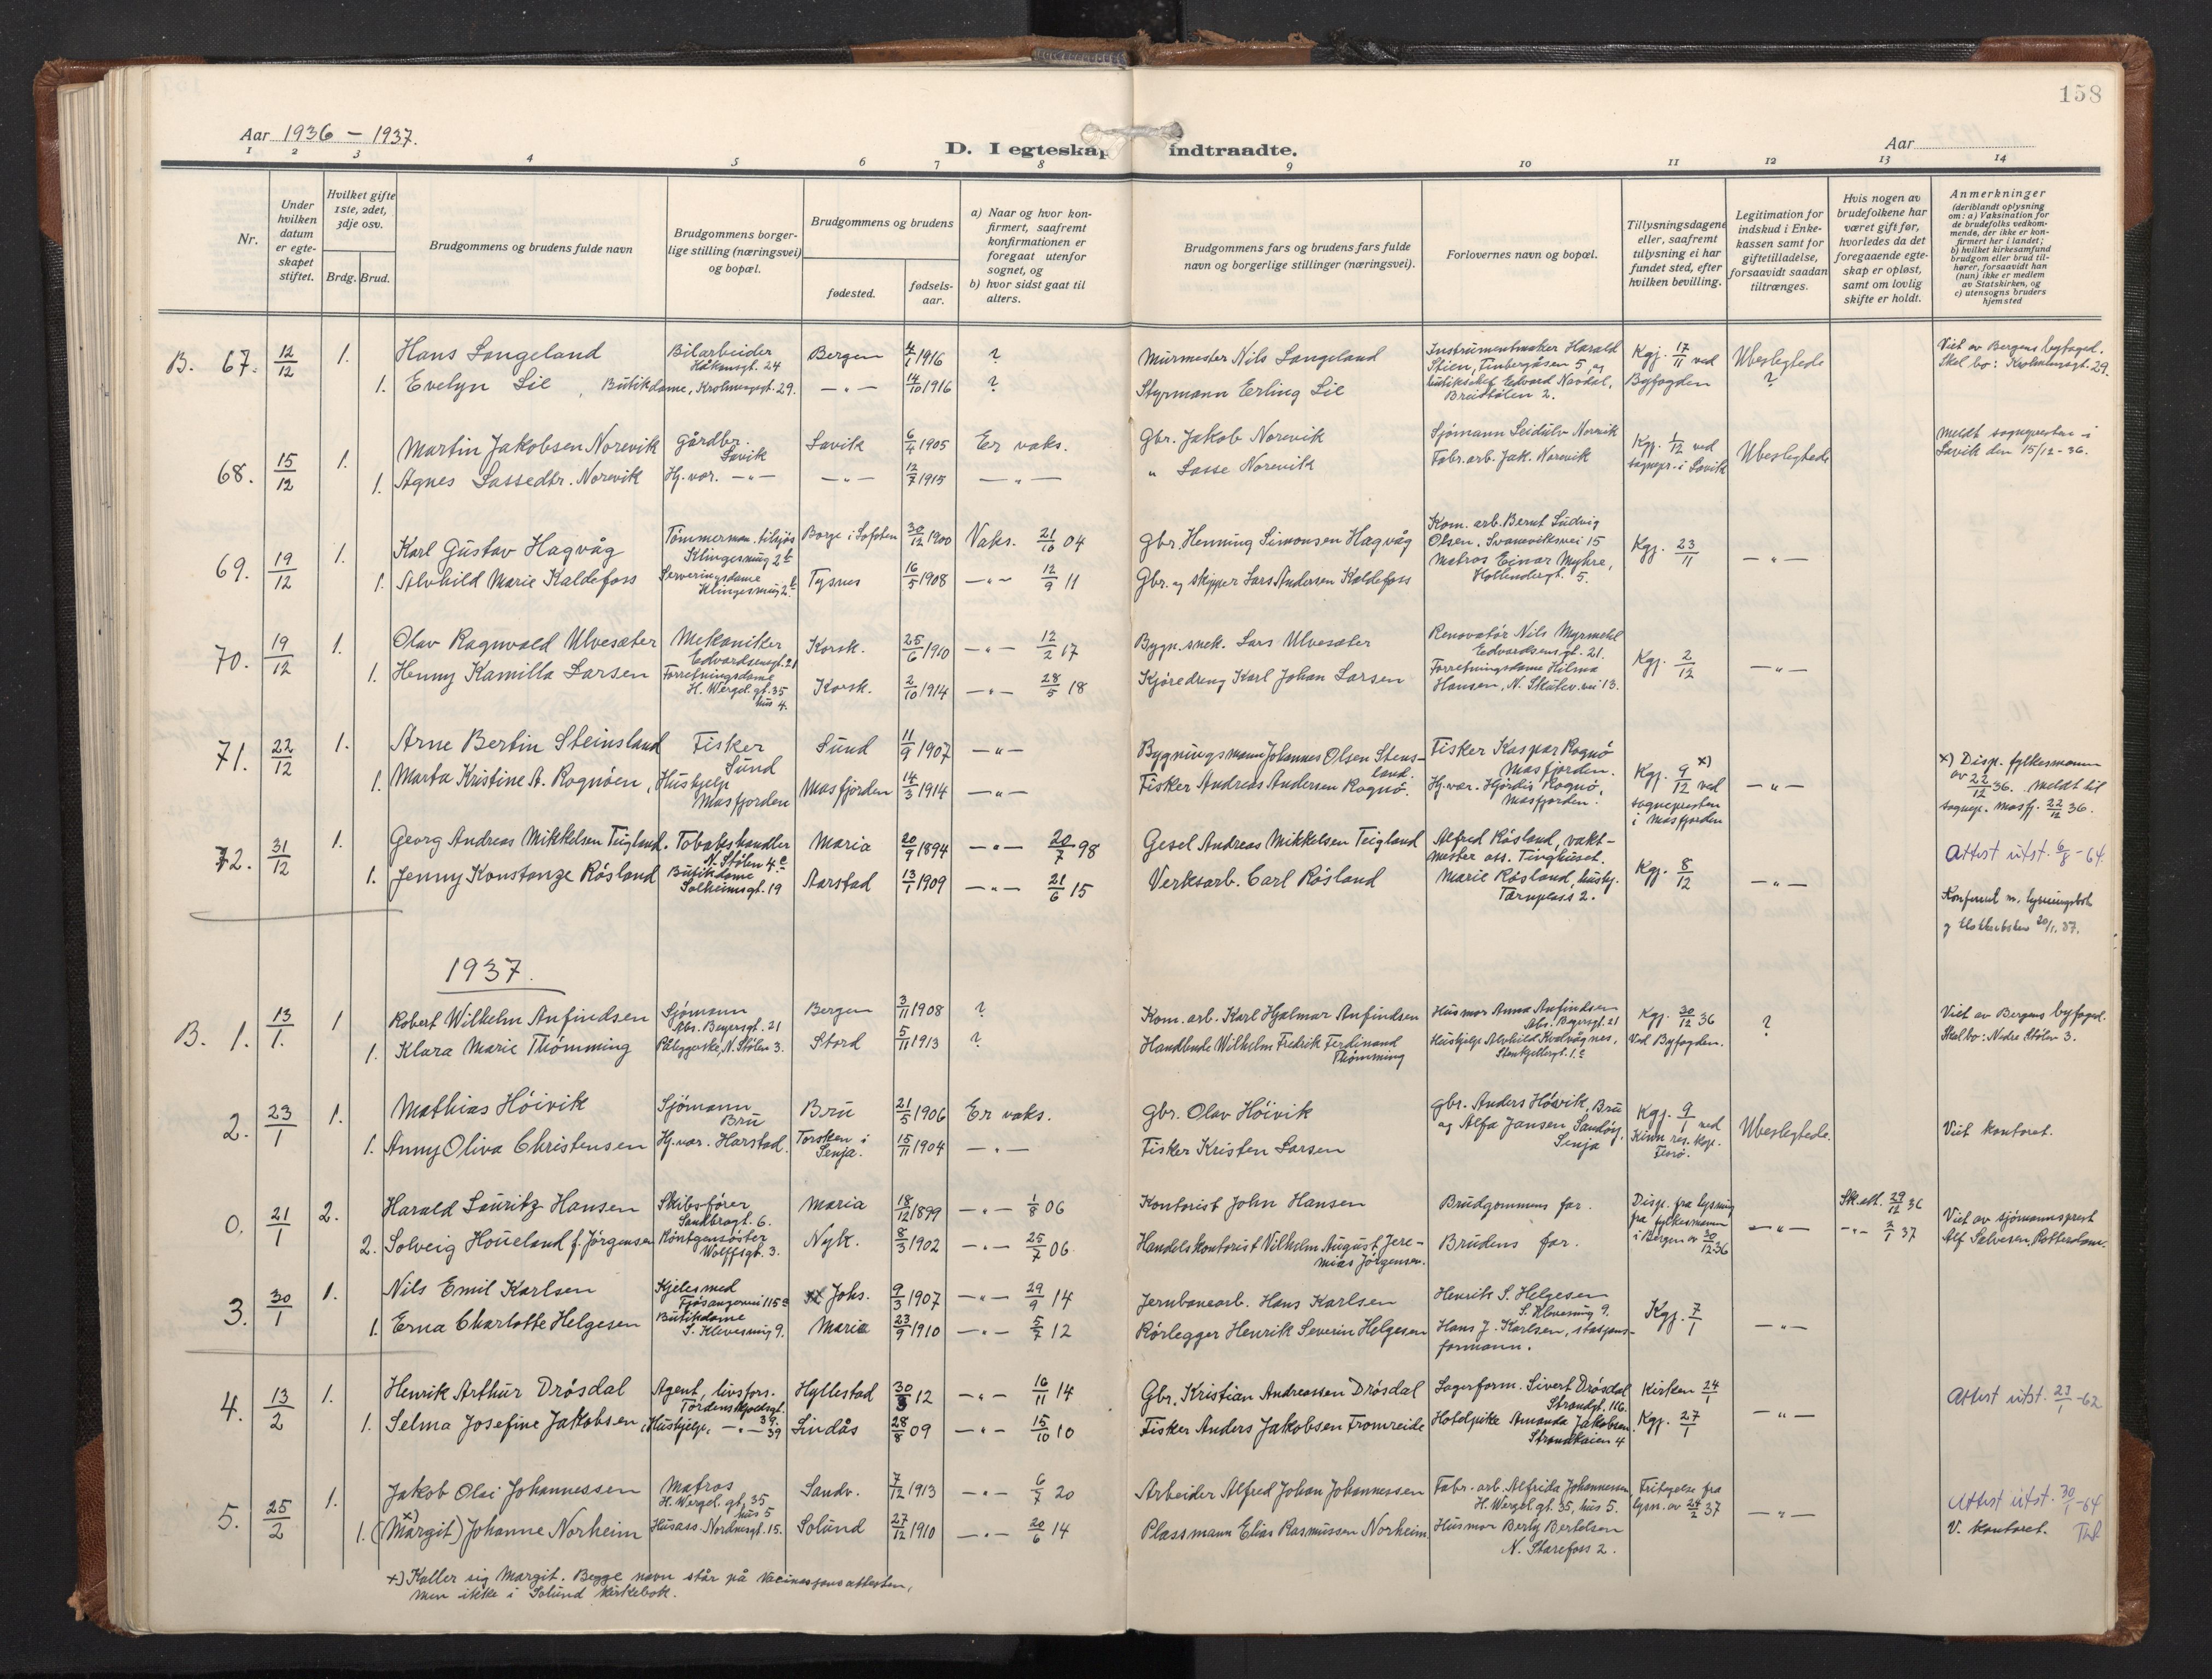 158
Aar 1936 – 1937.
D. I egteskap indtraadte.
Aar
1 2 3 4 5 6 7 8 9 10 11 12 13 14
Nr.
Under hvilken datum er egteskapet stiftet.
Hvilket gifte 1ste, 2det, 3dje osv.
Brdg. Brud.
Brudgommens og brudens fulde navn
Brudgommens borgerlige stilling (næringsvei) og bopæl.
Brudgommens og brudens
fødested.
fødselsaar.
a) Naar og hvor konfirmert, saafremt konfirmationen er foregaat utenfor sognet, og
b) hvor sidst gaat til alters.
Brudgommens fars og brudens fars fulde navn og borgerlige stillinger (næringsvei).
Forlovernes navn og bopæl.
Tillysningsdagene eller, saafremt tillysning ei har fundet sted, efter hvilken bevilling.
Legitimation for indskud i Enkekassen samt for giftetilladelse, forsaavidt saadan tiltrænges.
Hvis nogen av brudefolkene har været gift før, hvorledes da det foregaaende egteskap er opløst, samt om lovlig skifte er holdt.
Anmerkninger (deriblandt oplysning om: a) Vaksination for de brudefolks vedkommende, der ikke er konfirmert her i landet; b) hvilket kirkesamfund brudgom eller brud tilhører, forsaavidt han (hun) ikke er medlem av Statskirken, og c) utensogns bruders hjemsted
B. 67. 12/12 1. Hans Langeland Bilarbeider Håkonsgt. 24 Bergen 4/1 1916 ? Murmester Nils Langeland Instrumentmaker Harald Stien, Finbergåsen 5, og Kgj. 17/11 ved Ubeslegtede Viet av Bergens byfoged.
1. Evelyn Lie, Butikdame, Krohnengt. 29. –"– 14/10 1916 ? Styrmann Erling Lie butikschef Edvard Navdal, Breistølen 2. Byfogden ? Skal bo: Krohnengt. 29.
68. 15/12 1. Martin Jakobsen Norevik gårdbr. Lavik Lavik 6/4 1905 Er vaks. Gbr. Jakob Norevik Sjømann Leidulv Norevik Kgj. 1/12 ved Ubeslegtede Meldt sognepresten i
1. Agnes Lassedtr. Norevik Hj.vær. –"– –"– 12/7 1915 –"– " Lasse Norevik Fabr.arb. Jak. Norevik sognepr. i Lavik Lavik den 15/12-36.
69. 19/12 1. Karl Gustav Hagvåg Tømmerman. tilsjøs Klingesmug 2b Borge i Lofoten 30/12 1900 Vaks. 21/10 04 gbr. Henning Simonsen Hagvåg Kom. arb. Bernt Ludvig Olsen, Svaneviksvei 15 Kgj. 23/11 –"–
1. Alvhild Marie Kaldefoss Serveringsdame Klingesmug 2b Tysnes 16/5 1908 –"– 12/9 11 Gbr. og skipper Lars Andersen Kaldefoss Matros Einar Myhre, Hollendergt. 5.
70. 19/12 1. Olav Ragnvald Ulvesæter Mekaniker Edvardsensgt. 21 Korsk. 25/6 1910 –"– 12/2 17 Bygn. snek. Lars Ulvesæter Renovatør Nils Myrmehl Edvardsensgt. 21. Kgj. 2/12 –"–
1. Henny Kamilla Larsen Forretningsdame H. Wergel. gt. 35 hus 4. Korsk. 2/10 1914 –"– 28/5 18 Kjøredreng Karl Johan Larsen Forretningsdame Hilma Hansen, N. Skutev. vei 13.
71. 22/12 1. Arne Bertin Steinsland Fisker Sund Sund 11/9 1907 –"– Bygningsmann Johannes Olsen Stensland. Fisker Kaspar Rognø Masfjorden. Kgj. 9/12 x) ved –"– x) Disp. fylkesmannen
1. Marta Kristine A. Rognøen, Hushjelp Masfjorden Masfjorden 14/3 1914 –"– Fisker Andreas Andersen Rognø. Hj.vær. Hjørdis Rognø, Masfjorden. sognepresten i Masfjorden av 22/12 36. Meldt til sognepr. Masfj. 22/12 36.
72. 31/12 1. Georg Andreas Mikkelsen Teigland. Tobakshandler N. Stølen 4e Maria 20/9 1894 –"– 20/7 98 Gesel Andreas Mikkelsen Teigland Alfred Røsland, vaktmester ass. Tinghuset. Kgj. 8/12 –"– Attest utst. 6/8 -64.
1. Jenny Konstanze Røsland Butikdame Solheimsgt. 19 Aarstad 13/1 1909 –"– 21/6 15 Verksarb. Carl Røsland Marie Røsland, hushj. Tårnplass 2.
Konferert m. lysningsbok
20/1. 37.
1937.
B. 1. 13/1. 1 Robert Wilhelm Anfindsen Sjømann Abs. Beyersgt. 21 Bergen 3/11 1908 ? Kom. arb. Karl Hjalmar Anfindsen Husmor Anna Anfindsen Abs. Beyersgt. 21 Kgj. 30/12 36 ? Viet av Bergens byfoged.
1. Klara Marie Thømming Påleggerske, N. Stølen 3. Stord 5/11 1913 ? Handlende Wilhelm Fredrik Ferdinand Thømming Hushjelp Alvhild Kvalvågnes, Stenkjellergt. 1.c Ved Byfogden. Skal bo: Nedre Stølen 3.
2. 23/1 1. Mathias Høivik Sjømann Bru Bru 21/5 1906 Er vaks. Gbr. Olav Høivik gbr. Anders Høivik, Bru Kgj. 9/1 ved Ubeslegtede. Viet kontoret.
1. Anny Oliva Christensen Hj.vær. Harstad. Torsken i Senja. 15/11 1904 –"– Fisker Kristen Larsen og Alfa Jansen, Sandøy, Senja Kinn res. kap.
0. 21/1 2. Harald Lauritz Hansen Skibsfører Sandbrogt. 6. Maria 18/12 1899 –"– 1/8 06 Kontorist John Hansen Brudgommens far. Disp. fra lysning fra fylkesmannen –"– Sk.att. 29/12 36 Viet av sjømannsprest
2. Solveig Houeland f. Jørgensen Røntgensøster Wolffsgt. 3. Nyk. 8/3 1902 –"– 25/7 06. Handelskontorist Vilhelm August Jeremias Jørgensen. Brudens far. i Bergen av 30/12-36 –"– 2/1 37 Alf Selvesen, Rotterdam.
3. 30/1 1. Nils Emil Karlsen Kjelesmed Fjøsangervei 115a Johs. 9/3 1907 –"– 29/9 14 Jernbanearb. Hans Karlsen Henrik S. Helgesen S. Klevesmug 9. Kgj. 7/1 –"–
1. Erna Charlotte Helgesen Butikdame S. Klevesmug 9. Maria 23/9 1910 –"– 5/7 12 Rørlegger Henrik Severin Helgesen Hans J. Karlsen, stasjonsformann.
4. 13/2 1. Henrik Arthur Drøsdal Agent, livsfors. Tordenskjoldsgt. 39. Hyllestad 30/3 12 –"– 16/11 14 Gbr. Kristian Andreassen Drøsdal Lagerform. Sivert Drøsdal Strandgt. 116. Kirken 24/1 –"– Attest utst. 23/1 -62
1. Selma Josefine Jakobsen, Hushjelp, –"– 39 Lindås 28/8 09 –"– 15/10 10 Fisker Anders Jakobsen Fromreide Hotelpike Amanda Jakobsen Strandkaien 4 Kgj. 27/1
5. 25/2 1. Jakob Olai Johannessen Matros H. Wergel. gt. 35 hus 5 Sandv. 7/12 1913 –"– 6/7 20 Arbeider Alfred Johan Johannessen Fabr. arb. Alfrida Johannessen H. Wergel. gt. 35, hus 5. Fritagelse fra lysn. av 24/2 37 –"– Attest utst. 30/1 -64
1. (Margit)x) Johanne Norheim Husass. Nordnesgt. 15. Solund 27/12 1910 –"– 20/6 14 Plassmann Elias Rasmussen Norheim Husmor Berly Bertelsen N. Starefoss 2. V. kontoret.
x) Kaller sig Margit. Begge navn står på Vacinasjonsattesten,
men ikke i Solund kirkebok.